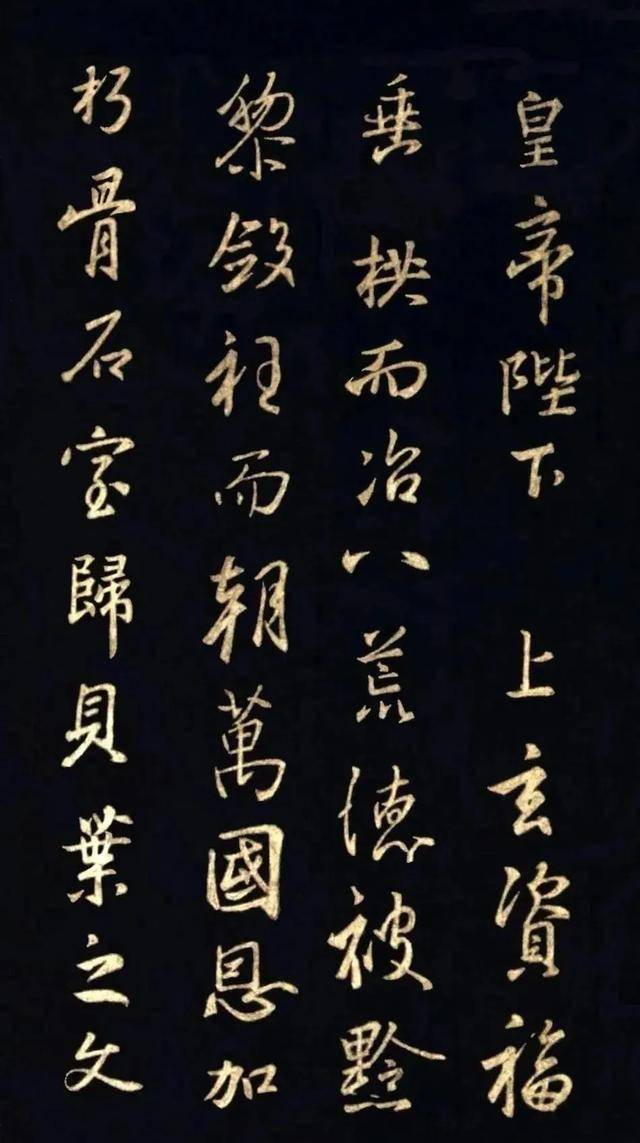 皇帝陛下 上玄資福
垂拱而治八荒德被黔
黎斂衽而朝萬國恩加
朽骨石室歸貝葉之文